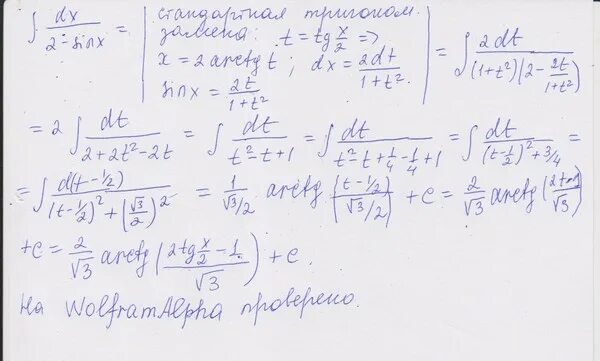 ∫ dx/(2-sinx) = | стандартная тригоном. замена: t = tg x/2 => x = 2 arctg t ; dx = 2dt/(1+t²) ; sinx = 2t/(1+t²) | = ∫ 2dt/((1+t²)(2 - 2t/(1+t²)))
= 2 ∫ dt/(2+2t²-2t) = ∫ dt/(t²-t+1) = ∫ dt/(t²-t+1/4-1/4+1) = ∫ dt/((t-1/2)²+3/4) =
= ∫ d(t-1/2)/((t-1/2)²+(√3/2)²) = 1/(√3/2) arctg ((t-1/2)/(√3/2)) + c = 2/√3 arctg ((2t-1)/√3)
+c = 2/√3 arctg ((2tg x/2 - 1)/√3) + c.
На WolframAlpha проверено.